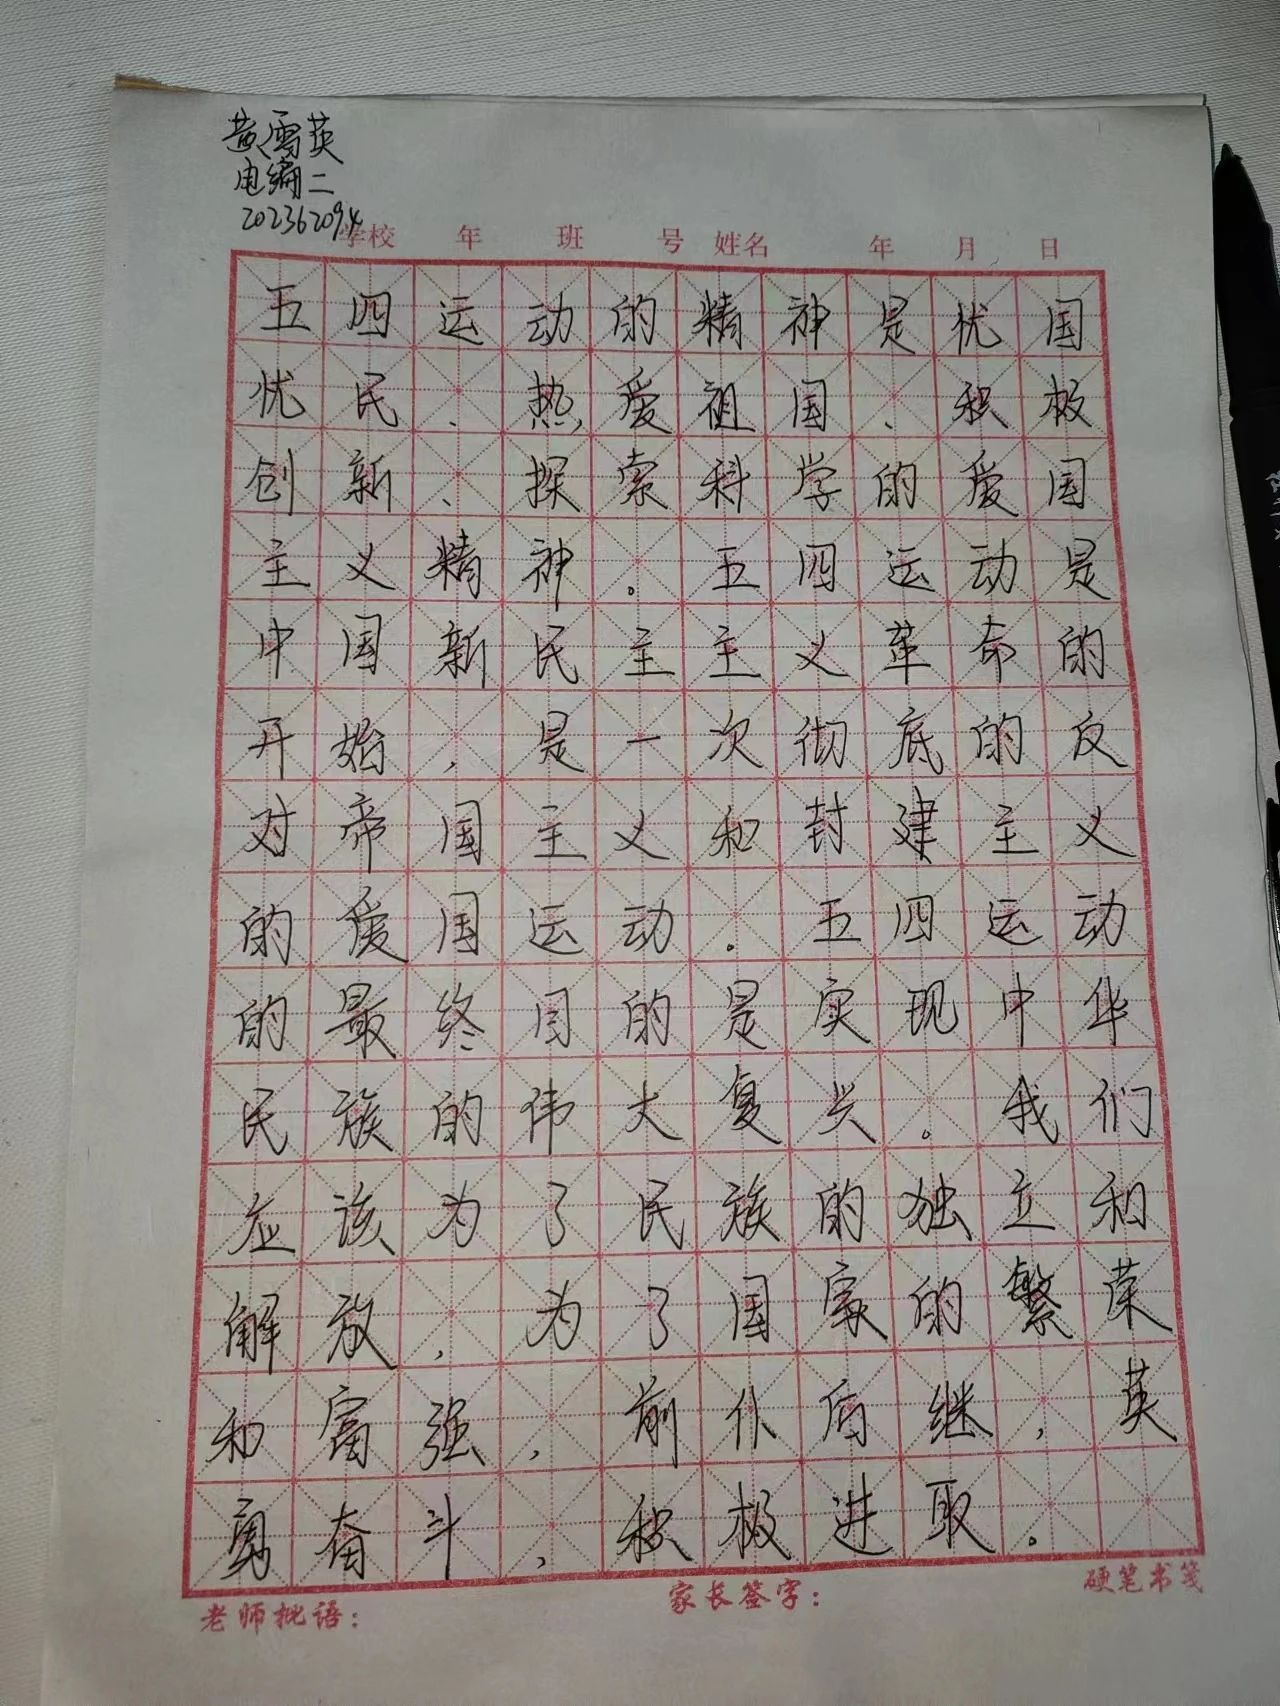 黄雪英
电编二
202362094
学校 年 班 号 姓名 年 月 日
五四运动的精神是忧国
忧民、热爱祖国、积极
创新、探索科学的爱国
主义精神。五四运动是
中国新民主主义革命的
开始，是一次彻底的反
对帝国主义和封建主义
的爱国运动。五四运动
的最终目的是实现中华
民族的伟大复兴。我们
应该为了民族的独立和
解放，为了国家的繁荣
和富强，前仆后继，英
勇奋斗，积极进取。
老师批语： 家长签字： 硬笔书笺